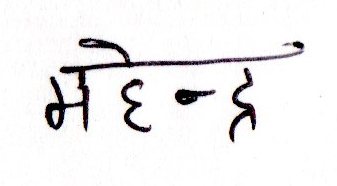 महेन्द्र